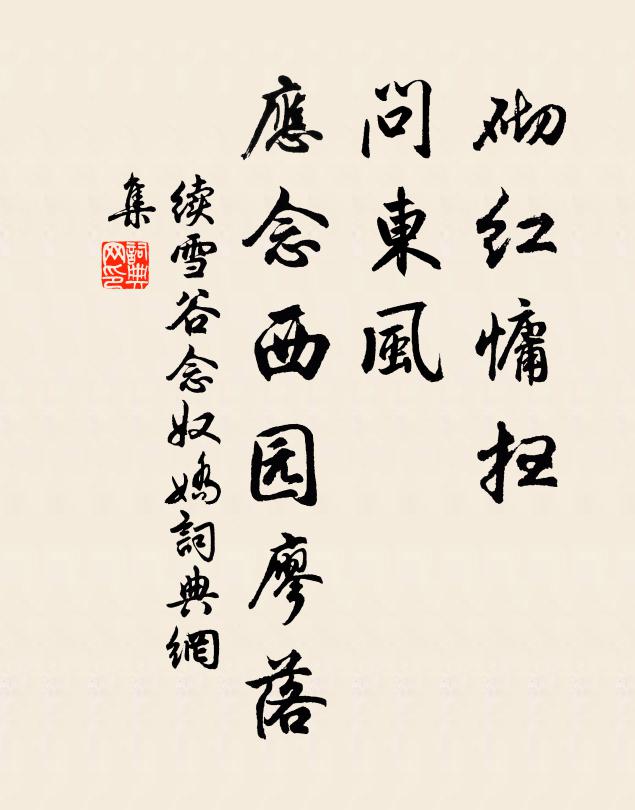 砌红慵扫
問東風
應念西园廖落
续雪谷念奴嬌詞典網
集
詞典
网印